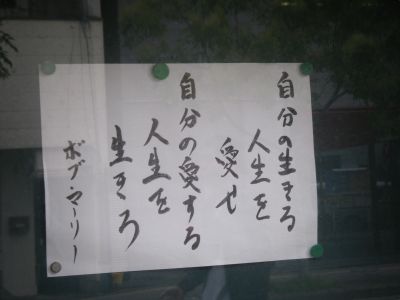 自分の生きる
人生を
愛せ
自分の愛する
人生を
生きろ
ボブ・マーリー